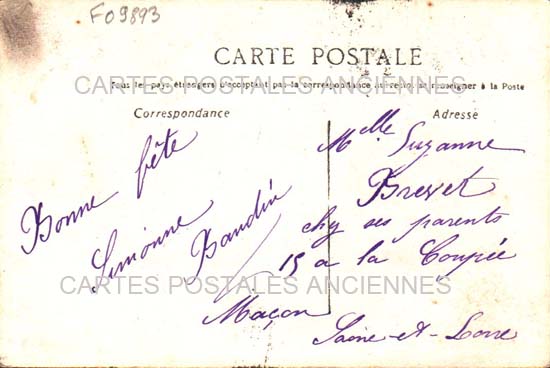 F09893
CARTE POSTALE
CARTES POSTALES ANCIENNES
Tous les pays étrangers n'acceptent pas la correspondance au recto, se renseigner à la Poste
Correspondance
Adresse
Bonne fête
Simonne Baudin
Mlle Suzanne
Brevet
chez ses parents
15 a la Coupée
CARTES POSTALES ANCIENNES
Macon
Saone-et-Loire